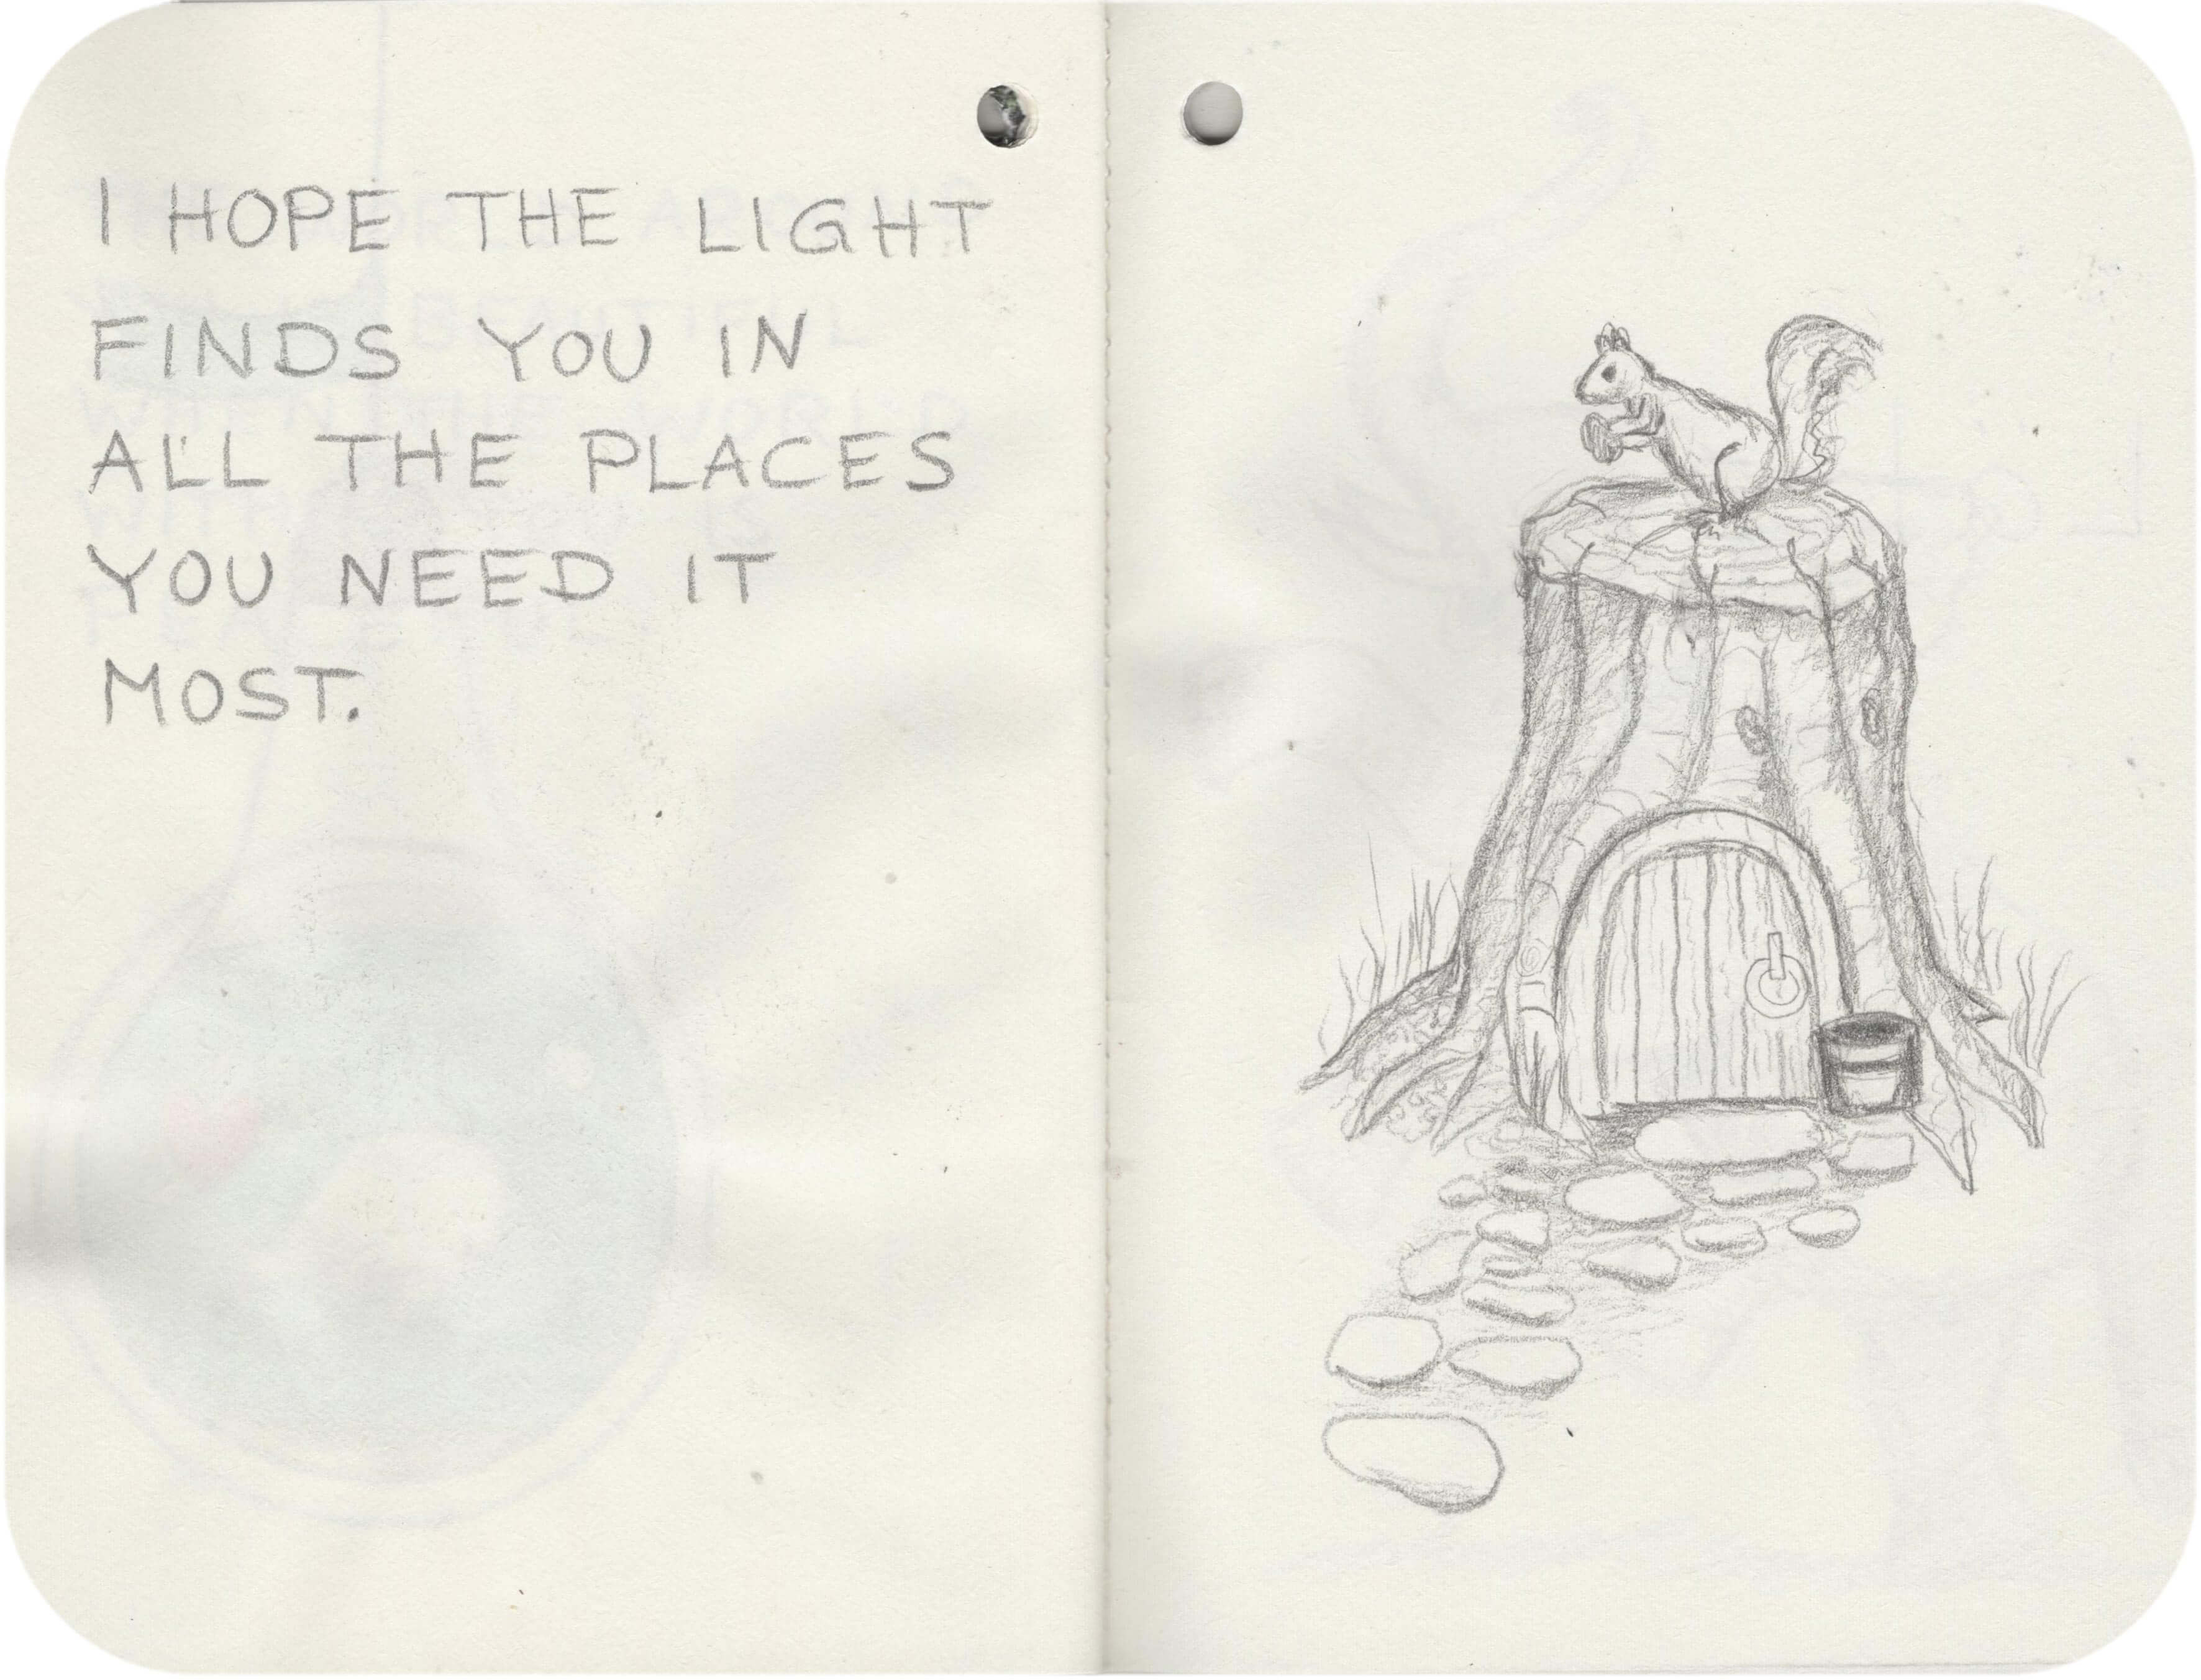 I HOPE THE LIGHT
FINDS YOU IN
ALL THE PLACES
YOU NEED IT
MOST.